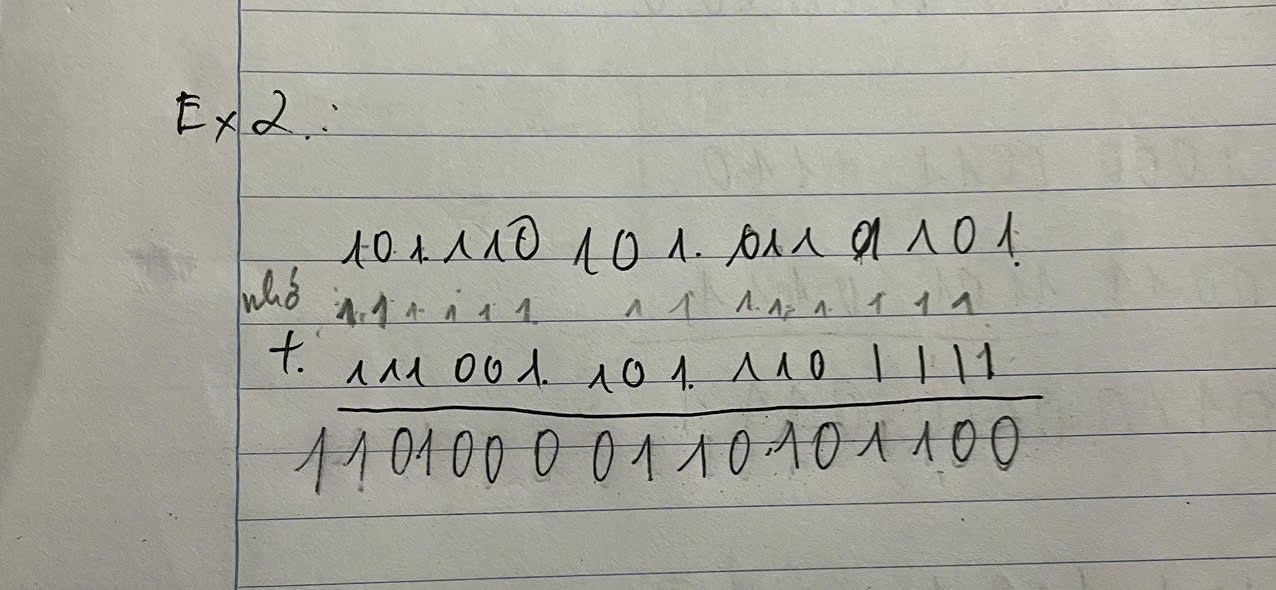 Ex 2.:
101.110 101. 011 0 101.
nhớ 1.1 1 1 1 1 1 1 1 1 1 1 1 1
+. 111 001. 101. 110 1111
110100 0 0110.101100